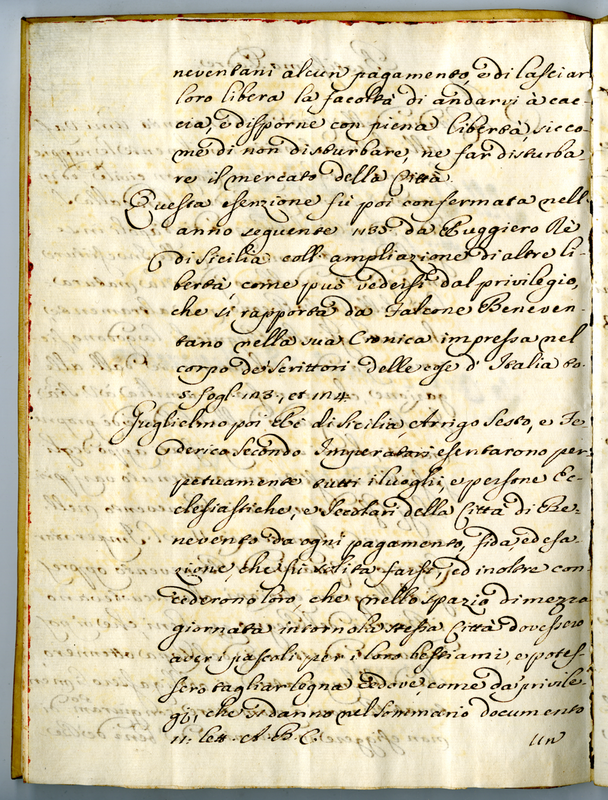 neventani alcun pagamento, e di lasciar
loro libera la facoltà di andarvi à cac-
cia, e disporne con piena libertà, sicco-
me di non disturbare, ne far disturba-
re il mercato della Città.
Questa esenzione fu poi confermata nell'
anno seguente 1137 da Ruggiero Rè
di Sicilia coll' ampliazione di altre li-
bertà, come può vedersi dal privilegio,
che si rapporta da Falcone Beneven-
tano nella sua Cronica impressa nel
corpo de Scrittori delle cose d' Italia to.
5. fogl. 123., et 124.
Guglielmo poi Rè di Sicilia, Arrigo Sesto, e Fe-
derico Secondo Imperatori esentarono per-
petuamente tutti i luoghi, e persone Ec-
clesiastiche, e Secolari della Città di Be-
nevento da ogni pagamento, fida, ed esa-
zione, che fu solita farsi, ed inoltre con-
cederono loro, che nello spazio di mezza
giornata intorno la stessa Città dovessero
aver i pascoli per i loro bestiami, e potes-
sero tagliar legna come da privile-
gj, che si danno nel Sommario documento
11. lett. A. B. C.
Un